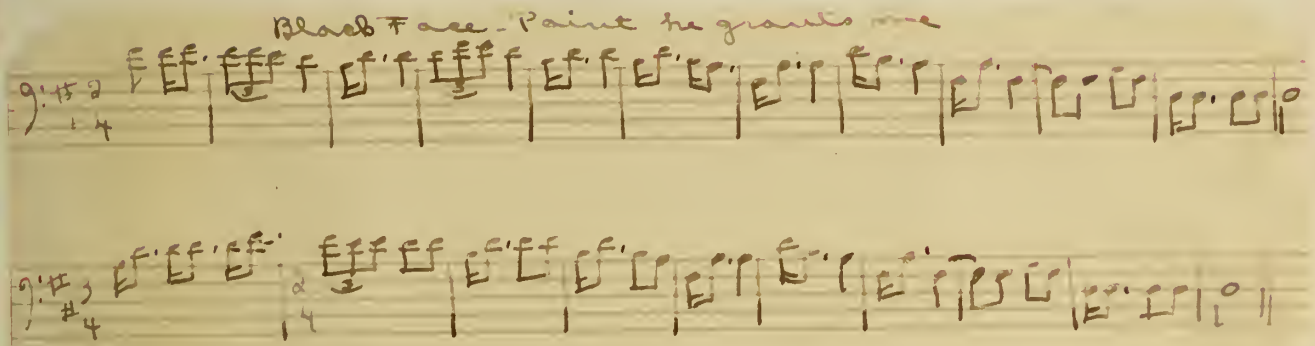 Black Face-Paint he grants me
2
4
3
3
3
4
2
4
3